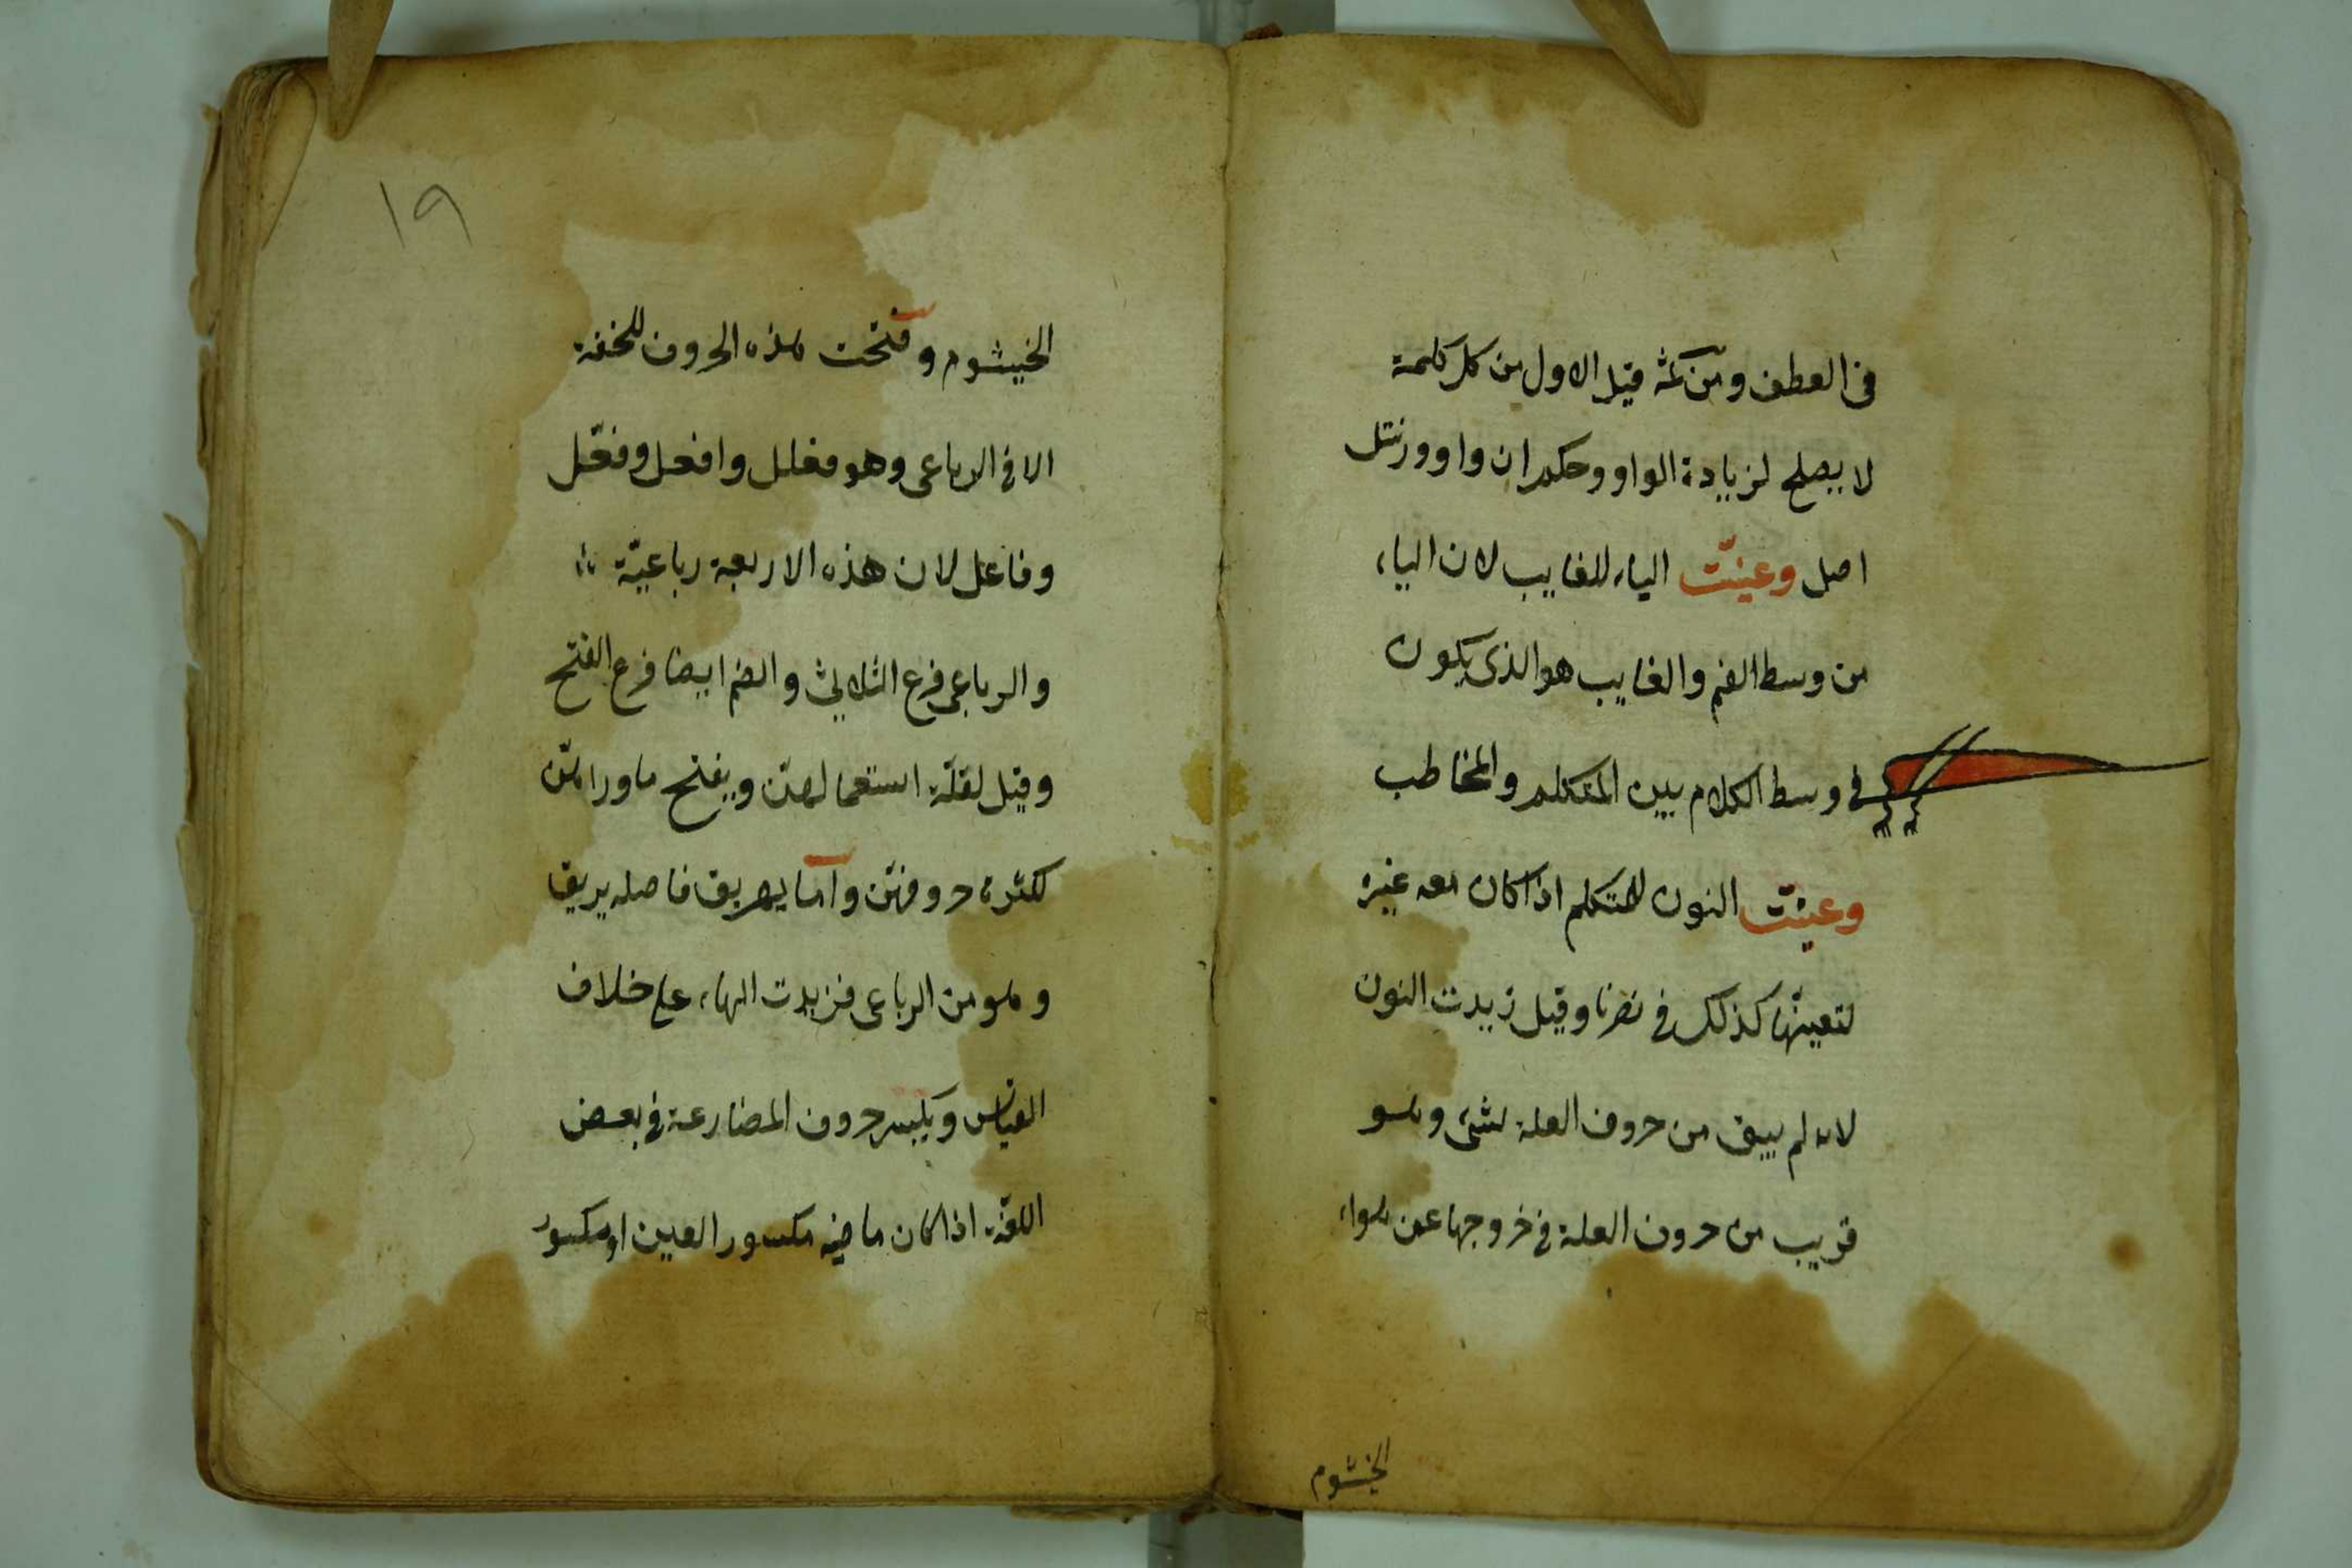 فى العطف ومن ثمّه قيل الاول من كل كلمة
لا يصلح لزيادة الواو وحكم ان واو ورنتل
اصل وعينت الياء للغايب لان الياء
من وسط الفم والغايب هو الذى يكون
فى وسط الكلام بين المتكلم والمخاطب
وعينت النون للمتكلم اذا كان معه غيره
لتعينها كذلك فى نصرنا وقيل زيدت النون
لانه لم يبق من حروف العلة لشئ وهو
قريب من حروف العلة فى خروجها عن هواء
الخيشوم
١٩
الخيشوم وفتحت هذه الحروف للخفة
الا فى الرباعى وهو فعلل وافعل وفعّل
وفاعل لان هذه الاربعة رباعيّة
والرباعى فرع الثلاثى والضم ايضا فرع الفتح
وقيل لقلّة استعمالهنّ ويفتح ما ورائهنّ
لكثرة حروفهنّ وامّا يهريق فاصله يريق
وهو من الرباعى فزيدت الهاء على خلاف
القياس ويكسر حروف المضارعة فى بعض
اللغة اذا كان ماضيه مكسور العين او مكسور